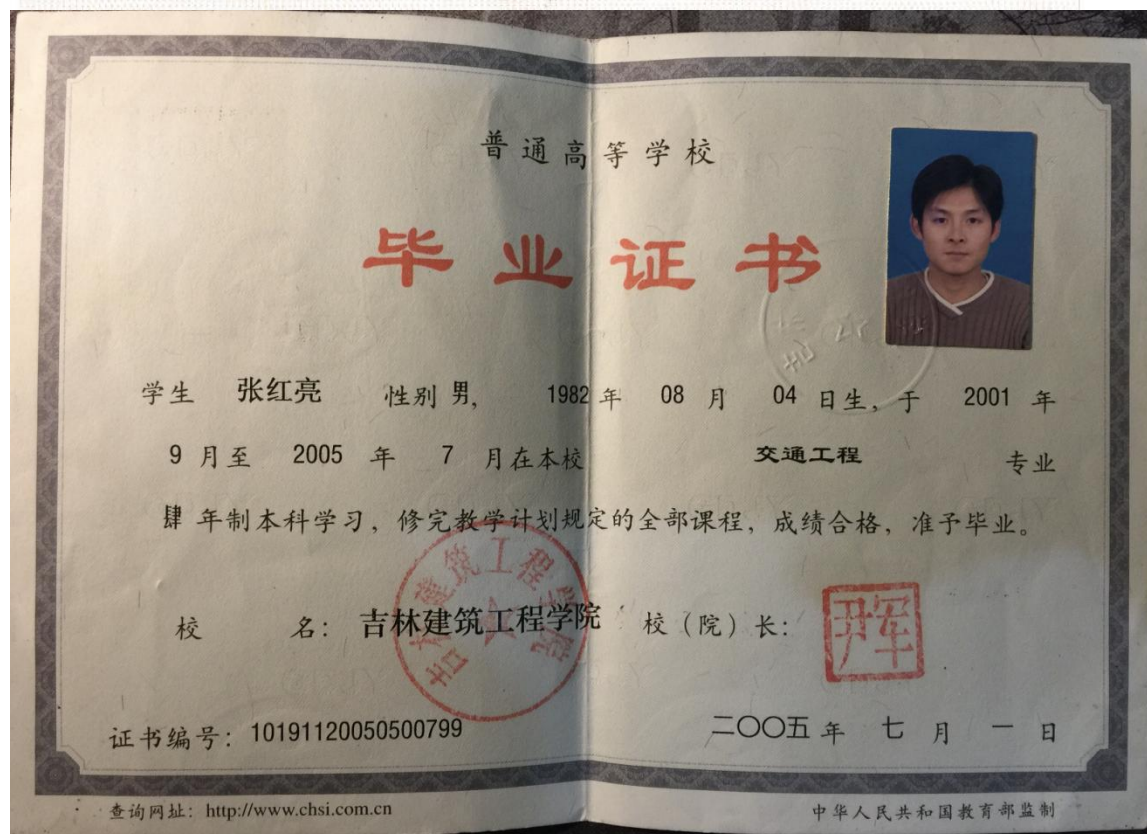 普通高等学校
毕业证书
学生 张红亮 性别 男, 1982 年 08 月 04 日生, 于 2001 年
9 月至 2005 年 7 月在本校 交通工程 专业
肆 年制本科学习, 修完教学计划规定的全部课程, 成绩合格, 准予毕业。
吉林建筑工程学院
校 名: 吉林建筑工程学院 校 (院) 长:
证书编号: 10191120050500799 二〇〇五 年 七 月 一 日
查询网址: http://www.chsi.com.cn 中华人民共和国教育部监制